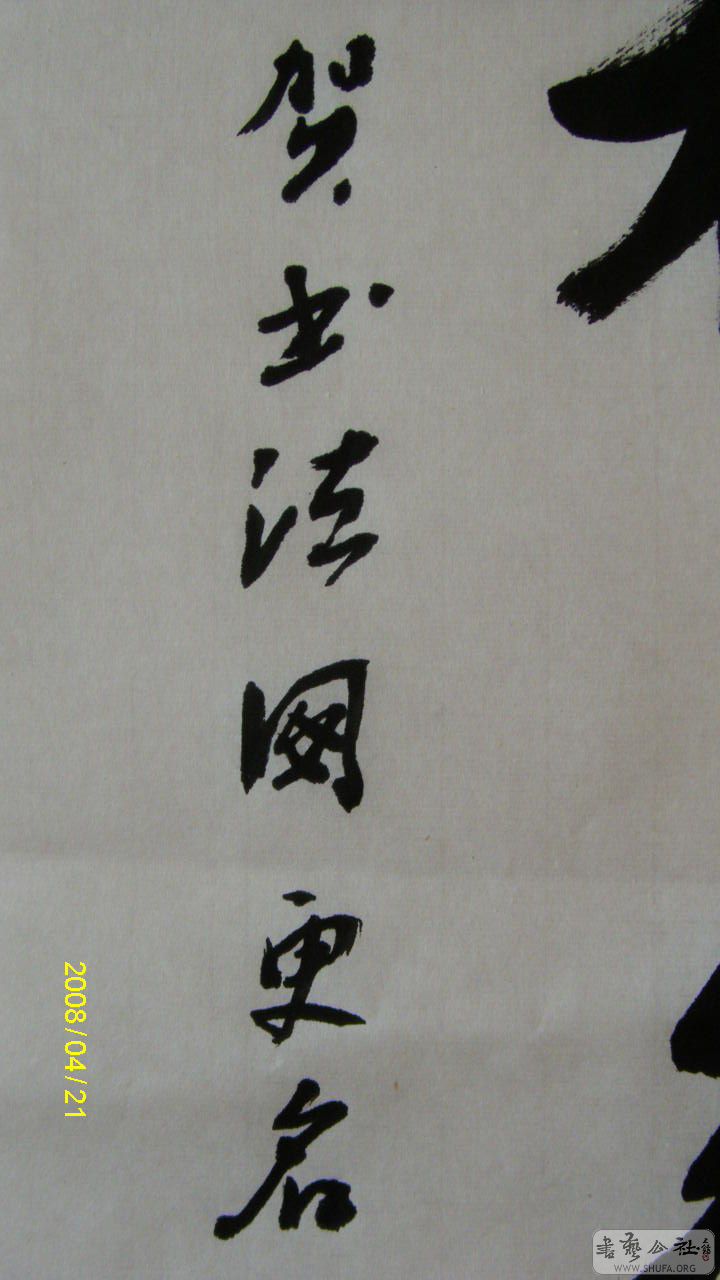 贺书法网更名
2008/04/21
書藝公社
WWW.SHUFA.ORG